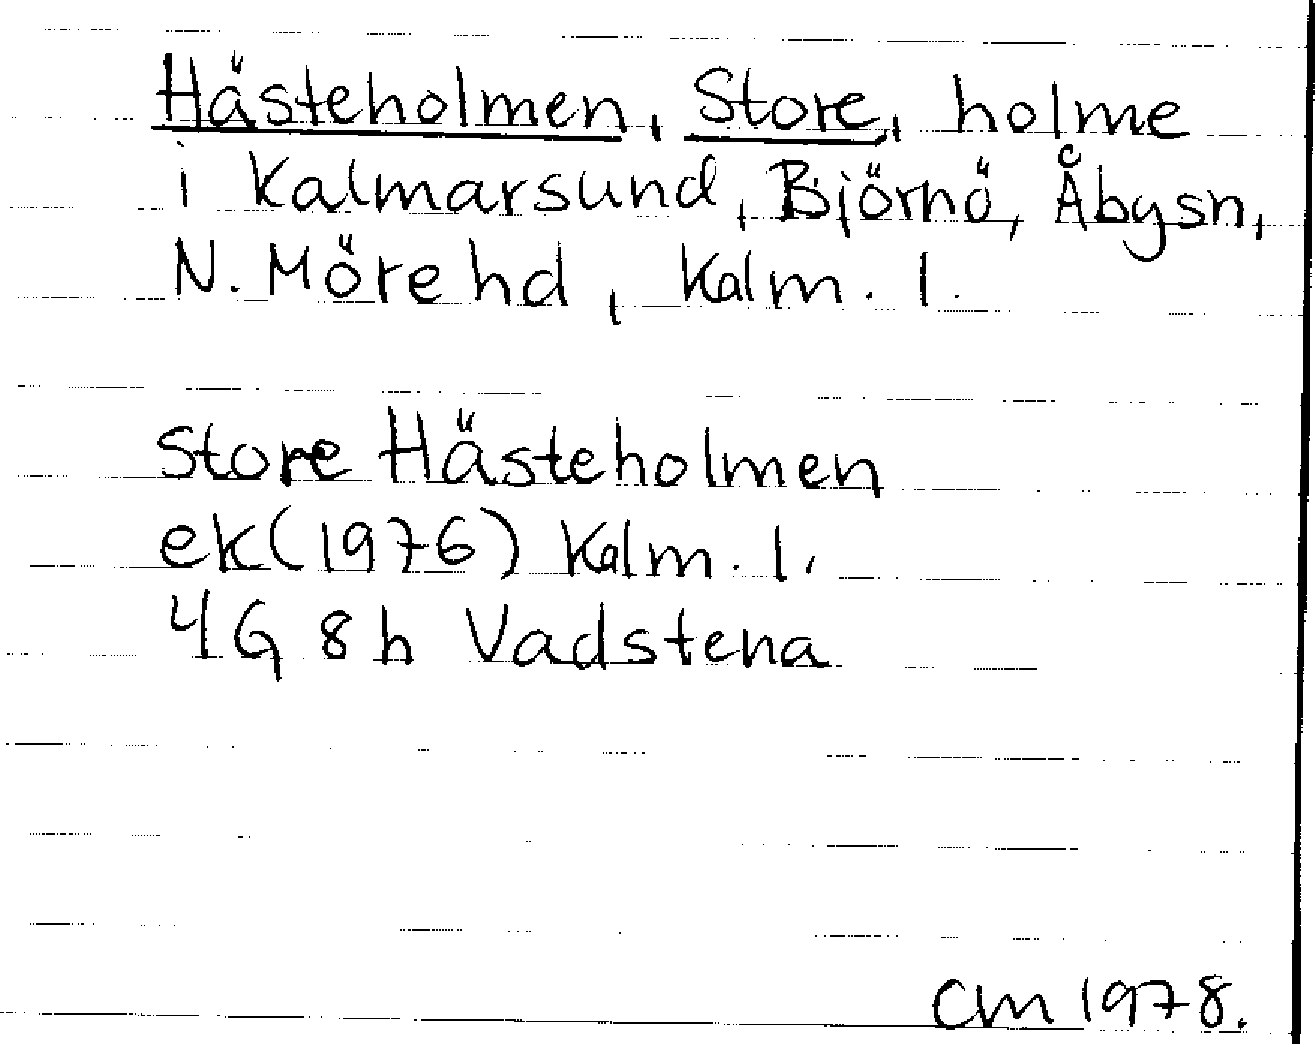 Hästeholmen, Store, holme
i Kalmarsund, Björnö, Åbysn,
N. Möre hd, Kalm. l.
Store Hästeholmen
ek (1976) Kalm. l.
4G 8h Vadstena
CM 1978.